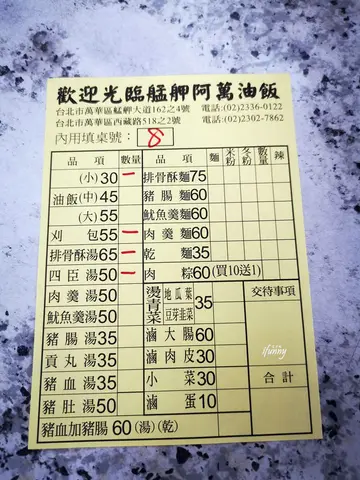 歡迎光臨艋舺阿萬油飯
台北市萬華區艋舺大道162之4號 電話:(02)2336-0122
台北市萬華區西藏路518之2號 電話:(02)2302-7862
內用填桌號: 8
品項 數量 品項 麵 米粉 冬粉 數量 辣
(小)30 一 排骨酥麵75
油飯(中)45 豬腸麵60
(大)55 魷魚羹麵60
刈包55 一 肉羹麵60
排骨酥湯65 一 乾麵35
四臣湯50 一 肉粽60(買10送1)
肉羹湯50 燙青菜 地瓜葉 豆芽韭菜 35 交待事項
魷魚湯50
豬腸湯35 滷大腸60
貢丸湯35 滷肉皮30
豬血湯35 小菜30 合計
豬肚湯50 滷蛋10
豬血加豬腸60(湯)(乾)
ifunny